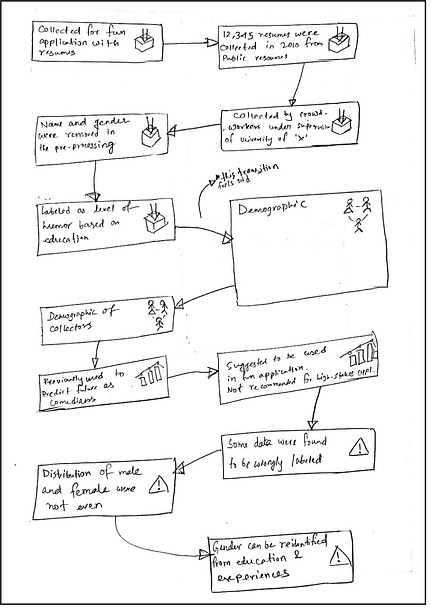 Collected for fun
application with
resumes
12,345 resumes were
collected in 2010 from
Public resources
Collected by crowd-
-workers under supervision
of university of 'X'
Name and gender
were removed in
the pre-processing
Labeled as level of
humor based on
education
this transition
feels odd
Demographic
Demographic of
collectors
Previously used to
Predict future as
Comedians
Suggested to be used
in fun application.
Not recommended for high-stakes
Some data were found
to be wrongly labeled
Distibution of male
and female were
not even
Gender can be reidentified
from education &
experiences